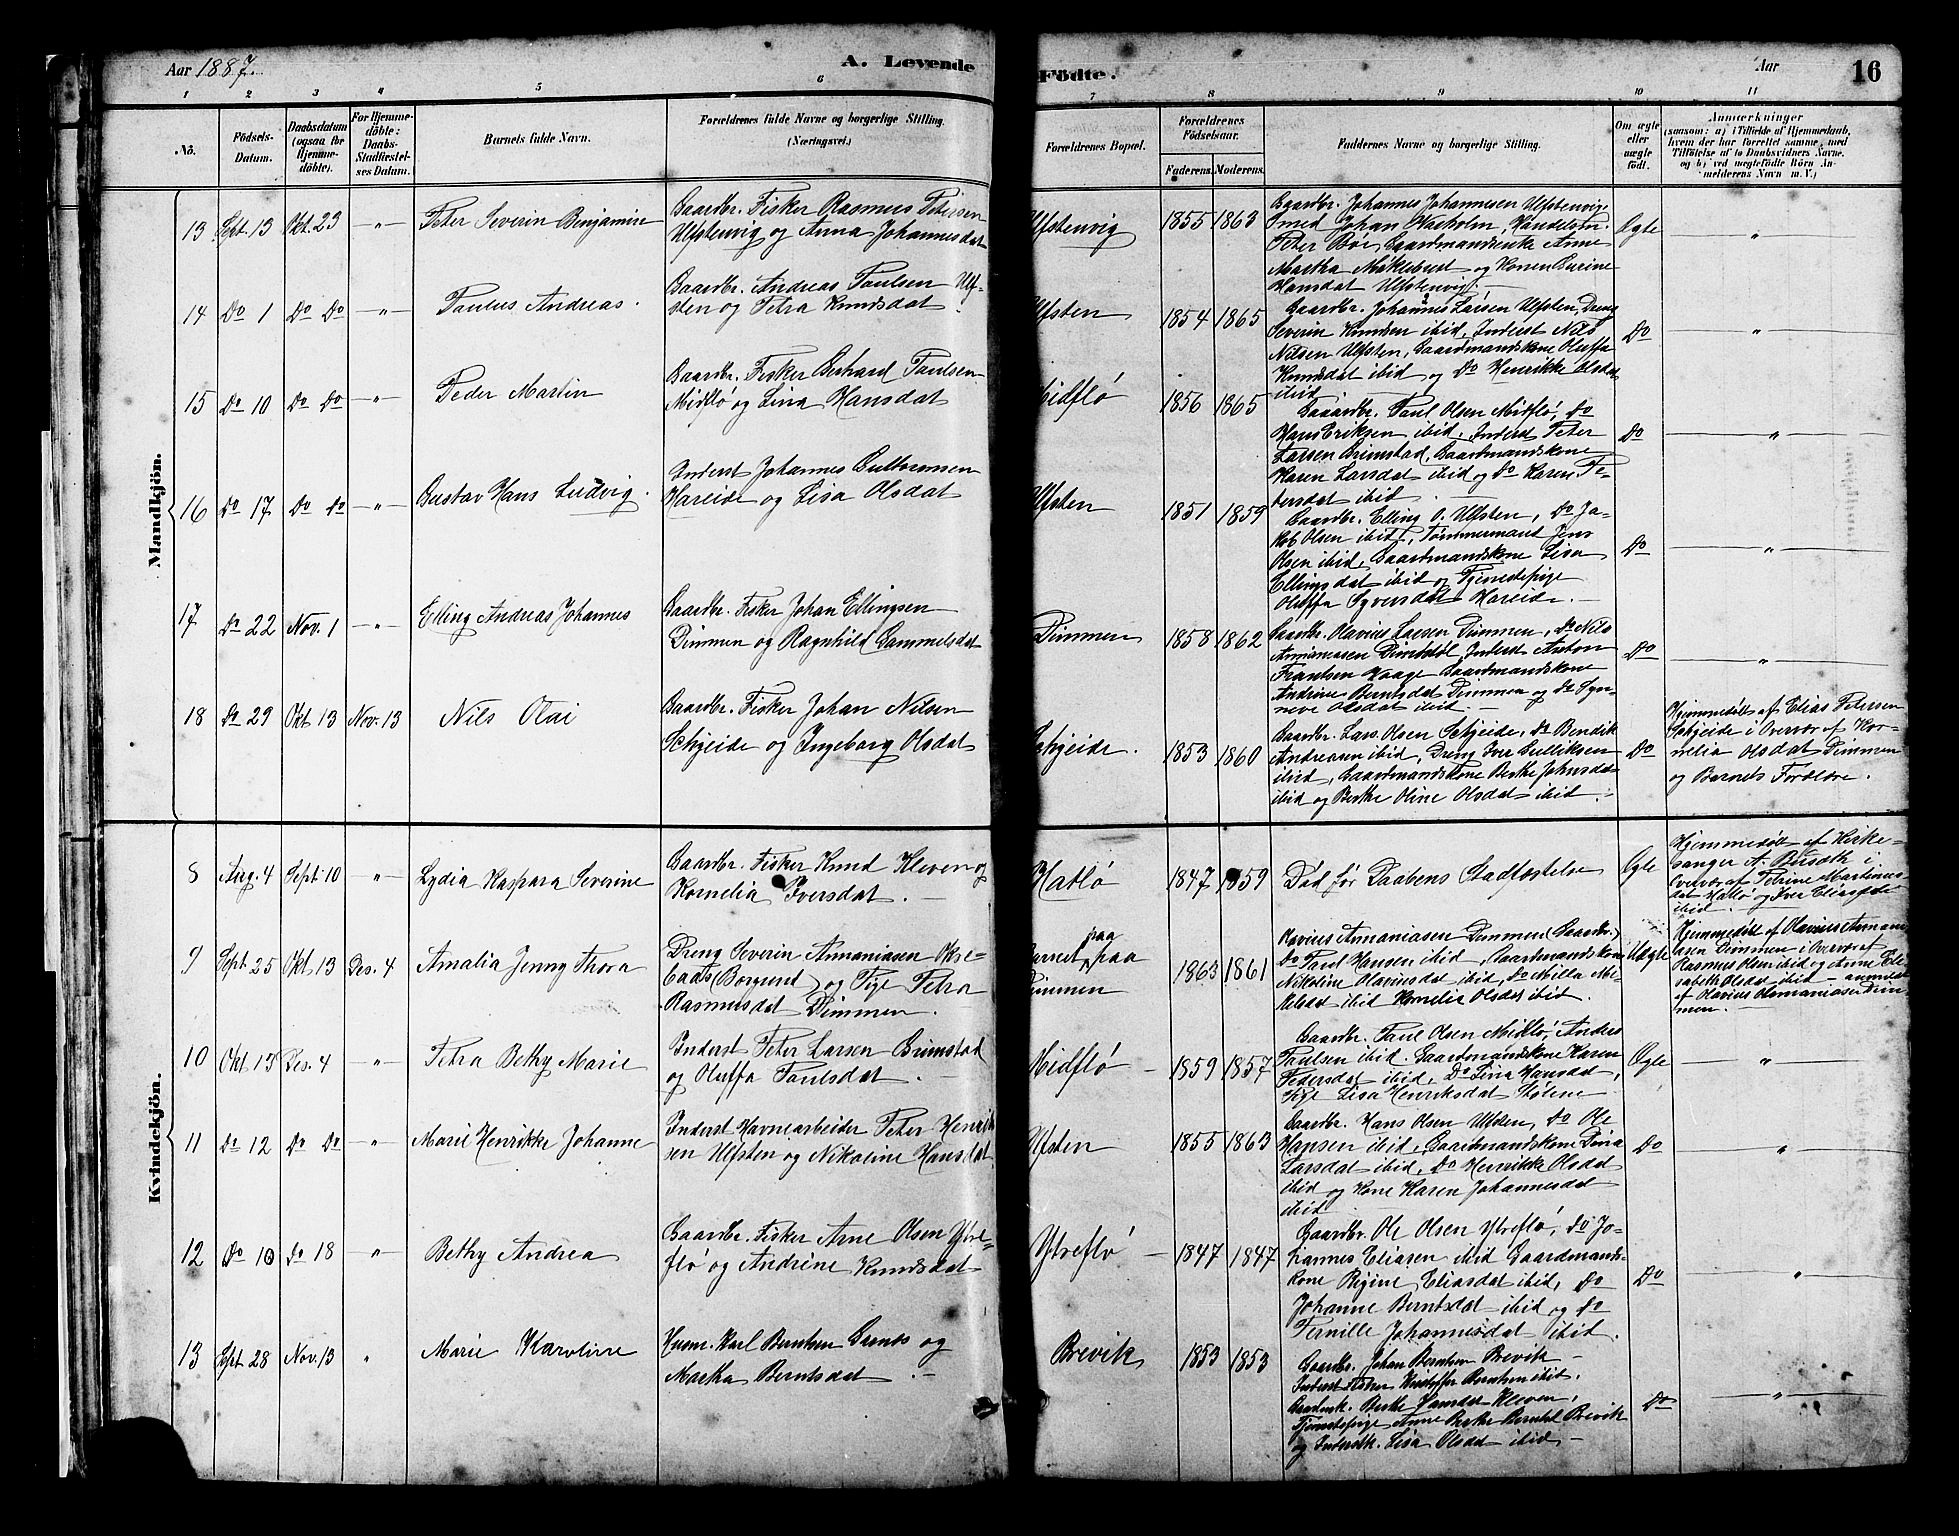 Aar 1887. A. Levende
Fødte. Aar 16
1 2 3 4 5 6
7 8 9 10 11
No.
Födsels-
Datum.
Daabsdatum
(ogsaa for
Hjemme-
döbte).
For Hjemme-
döbte:
Daabs-
Stadfæstel-
ses Datum.
Barnets fulde Navn.
Forældrenes fulde Navne og borgerlige Stilling.
(Næringsvei.)
Forældrenes Bopæl.
Forældrenes
Födselsaar.
Faderens. Moderens.
Faddernes Navne og borgerlige Stilling.
Om ægte
eller
uægte
födt.
Anmærkninger
(saasom: a) i Tilfælde af Hjemmedaab,
hvem der har forrettet samme, med
Tilföielse af to Daabsvidners Navne,
og b) ved uægtefödte Börn An-
melderens Navn m. V.)
Mandkjön.
13 Sept. 13 Okt. 23 -„- Peter Severin Benjamin
Gaardbr. Fisker Rasmus Petersen
Ulfstenvig og Anna Johannesdat
Ulfstenvig 1855 1863
Gaardbr. Johannes Johannesen Ulfstenvig
Smed Johan Waskolm, Handelsm.
Peter Bøe, Gaardmandsenke Anne
Martha Møklebust og Konen Burine
Hansdat Ulfstenvig.
Ægte „
14 Do 1 Do Do -„- Paulus Andreas.
Gaardbr. Andreas Paulsen Ulf-
sten og Petra Knudsdat
Ulfsten 1854 1865
Gaardbr. Johannes Larsen Ulfsten, Dreng
Severin Knudsen ibid, Inderst Nils
Nilsen Ulfsten, Gaardmandskone Oluffa
Knudsdat ibid og Do Henrikke Olsdat
ibid.
Do „
15 Do 10 Do Do -„- Peder Martin
Gaardbr. Fisker Gerhard Paulsen
Midflø og Lina Hansdat
Midflø 1856 1865
Gaardbr. Paul Olsen Midflø, Do
Hans Eriksen ibid, Inderst Peter
Larsen Brimstad, Gaardmandskone
Karen Larsdat ibid og Do Karen Pe-
dersdat ibid
Do „
16 Do 17 Do Do -„- Gustav Hans Ludvig.
Inderst Johannes Guttormsen
Hareide og Lisa Olsdat
Ulfsten 1851 1859
Gaardbr. Elling O. Ulfsten, Do Ja-
kob Olsen ibid, Tømmermand Jens
Olsen ibid, Gaardmandskone Lisa
Ellingsdat ibid og Tjenestepige
Oluffa Syversdat Hareide.
Do „
17 Do 22 Nov. 1 -„- Elling Andreas Johannes
Gaardbr. Fisker Johan Ellingsen
Dimmen og Ragnhild Gammelsdat
Dimmen 1858 1862
Gaardbr. Olavius Larsen Dimmen, Do Nils
Annaniasen Inderst Anton
Frantsen Haage Gaardmandskone
Andrine Berntsdat Dimmen og Do Syn-
neve Olsdat ibid
Do „
18 Do 29 Okt. 13 Nov. 13 Nils Olai
Gaardbr. Fisker Johan Nilsen
Schjeide og Ingeborg Olsdat
Schjeide. 1853 1860
Gaardbr. Lars Olsen Schjeide, Do Bendik
Andreasen ibid, Dreng Iver Gulliksen
ibid, Gaardmandskone Berthe Johnsdat
ibid og Berthe Oline Olsdat ibid.
Do
Hjemmedøbt af Elias Petersen
Schjeide i Overvær af Kor-
nelia Olsdat Dimmen
og Barnets Forældre.
Kvindekjön.
8 Aug. 4 Sept. 10 „ Lydia Kaspara Severine
Gaardbr. Fisker Knud Kleven og
Kornelia Iversdat.
Hatlø 1847 1859 Død før Daabens Stadfæstelse Ægte
Hjemmedøbt af Kirke-
sanger A. Bursæth i
Overvær af Petrine Martinus-
dat Hatlø og Iver Eliasen
ibid.
9 Sept. 25 Okt. 13 Des. 4 Amalia Jenny Thora
Dreng Severin Annaniasen Okse-
(Borgund) og Pige Petra
Rasmusdat Dimmen.
Barnet paa
Dimmen 1863 1861
Olavius Annaniasen Dimmen (Gaardbr.)
Do Paul Hansen ibid, Gaardmandskone
Nikoline Olaviusdat ibid, Do Milla Mi-
kelsdat ibid Kornelia Olsdat ibid.
Uægte
Hjemmedøbt af Olavius Annani-
asen Dimmen i Overvær af
Rasmus Olsen ibid og Anne Eli-
sabeth Olsdat ibid anmeldt
af Olavius Annaniasen Dim-
men.
10 Okt. 13 Des. 4 „ Petra Bethy Marie
Inderst Peter Larsen Brimstad
og Oluffa Paulsdat.
Midflø 1859 1857
Gaardbr. Paul Olsen Midflø, Anders
Paulsen ibid. Gaardmandskone Karen
Pedersdat ibid, Do Lina Hansdat,
Pige Lisa Henriksdat Støtene
Ægte „
11 Do 12 Do Do „ Marie Henrikke Johanne
Inderst Havnearbeider Peter Henrik-
sen Ulfsten og Nikoline Hansdat
Ulfsten 1855 1863
Gaardbr. Hans Olsen Ulfsten, Do Ole
Hansen ibid, Gaardmandskone Dina
Larsdat ibid, Do Henrikke Olsdat
ibid og Kone Karen Johannesdat
ibid
Do „
12 Do 10 Do 18 „ Bethy Andrea
Gaardbr. Fisker Arne Olsen Ytre-
flø og Andrine Knudsdat
Ytreflø 1847 1847
Gaardbr. Ole Olsen Ytreflø, Do Jo-
hannes Eliasen ibid Gaardmands-
kone Regine Eliasdat ibid, Do
Johanne Berntsdat ibid og Do
Pernille Johannesdat ibid.
Do „
13 Sept. 28 Nov. 13 „ Marie Karoline
Husm. Karl Berntsen og
Martha Berntsdat.
Brevik 1853 1853
Gaardbr. Johan Berntsen Brevik
Inderst Fisker Kristoffer Berntsen ibid.
Gaardmk. Berthe Kleven,
Tjenestepige Anne Berthe Brevik
og Inderstk. Lisa Olsdat ibid
Do „